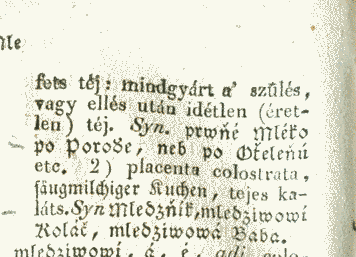 fets téj: mindgyárt a' szűlés,
vagy ellés után idétlen (éret-
len) téj. Syn. prwńé Mléko
po Porode, neb po Oťeleňú
etc. 2) placenta colostrata,
säugmilchiger Kuchen, tejes ka-
láts. Syn Mledzńík, mledziwowí
Koláč, mledziwowá Baba.
mledziwowí, á, é, adj.